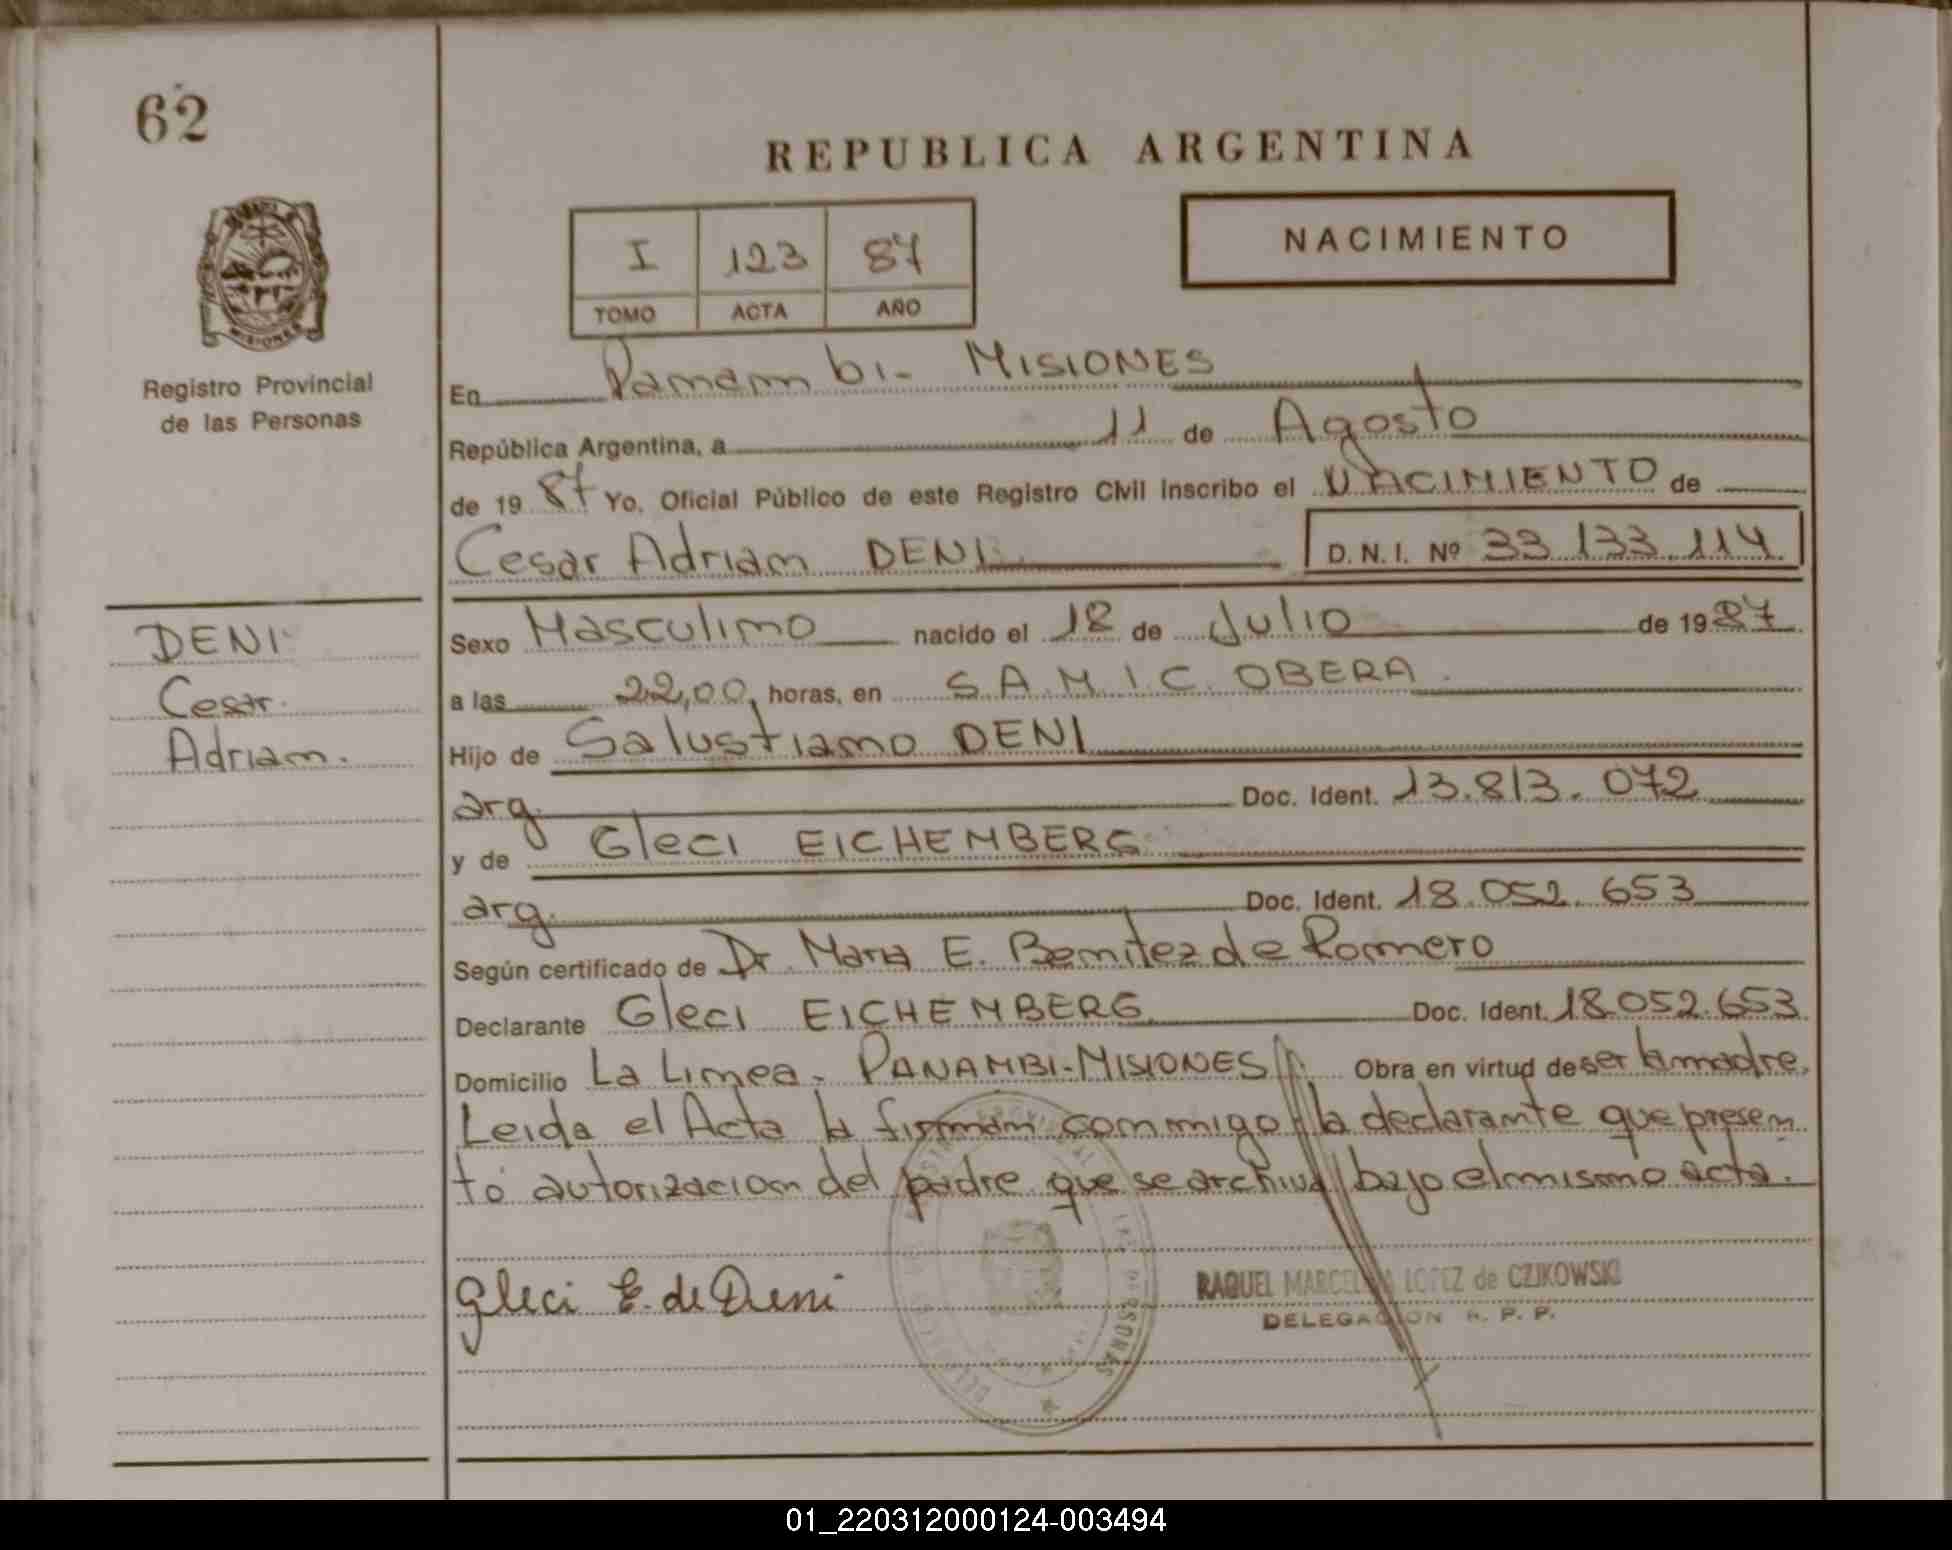 62
MISIONES
Registro Provincial
de las Personas
DENI
Cesar
Adrian.
REPUBLICA ARGENTINA
I 123 87
TOMO ACTA AÑO
NACIMIENTO
En Panambi - MISIONES
República Argentina, a 11 de Agosto
de 19 87 Yo, Oficial Público de este Registro Civil inscribo el NACIMIENTO de
Cesar Adrian DENI D.N.I. Nº 33.133.114
Sexo Masculino nacido el 18 de Julio de 1987
a las 22,00 horas, en S.A.M.I.C. OBERA.
Hijo de Salustiano DENI
arg. Doc. Ident. 13.813.072
y de Gleci EICHEMBERG
arg. Doc. Ident. 18.052.653
Según certificado de Dr. Maria E. Benitez de Romero
Declarante Gleci EICHEMBERG Doc. Ident. 18.052.653
Domicilio La Linea. PANAMBI-MISIONES Obra en virtud de ser la madre.
Leida el Acta la firman conmigo la declarante que presen
tó autorizacion del padre que se archiva bajo el mismo acta.
Gleci E. de Deni
RAQUEL MARCELINA LOPEZ de CZIKOWSKI
DELEGACION R. P. P.
01_220312000124-003494